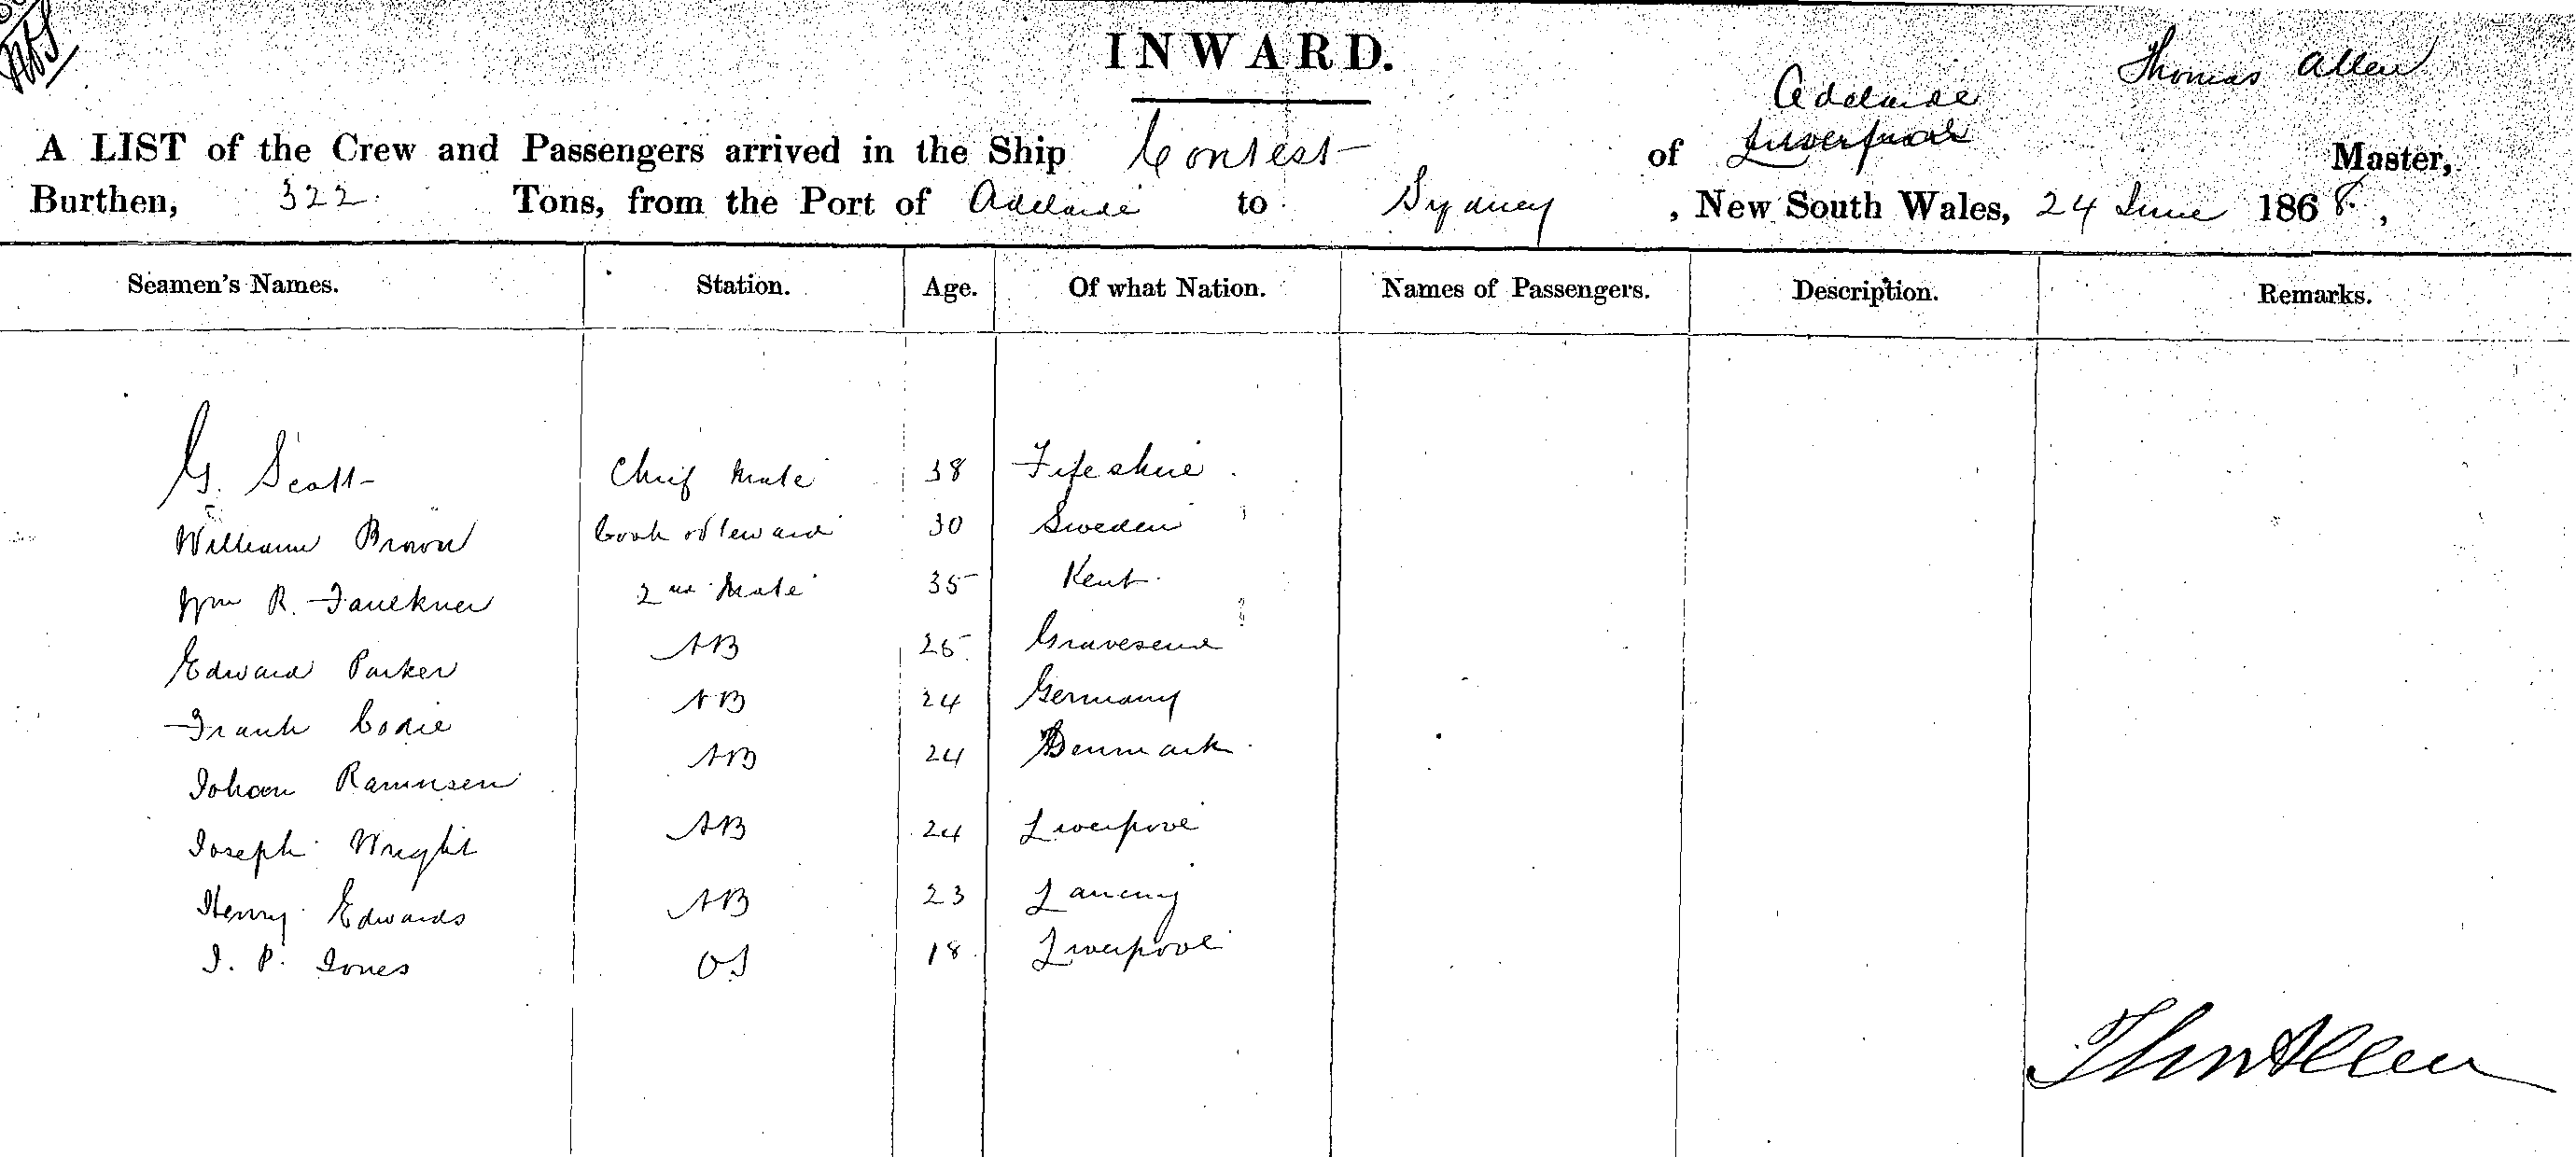 INWARD.
Thomas Allen
Adelaide
A LIST of the Crew and Passengers arrived in the Ship Contest of Liverpool Master,
Burthen, 322 Tons, from the Port of Adelaide to Sydney, New South Wales, 24 June 1868,
Seamen's Names. Station. Age. Of what Nation. Names of Passengers. Description. Remarks.
G. Scott Chief Mate 38 Fifeshire
William Brown Cook & Steward 30 Sweden
Wm R. Faulkner 2nd Mate 35 Kent
Edward Parker AB 25 Gravesend
Frank Codie AB 24 Germany
Johan Ramusen AB 24 Denmark
Joseph Wright AB 24 Liverpool
Henry Edwards AB 23
J. P. Jones OS 18 Liverpool
Thos Allen